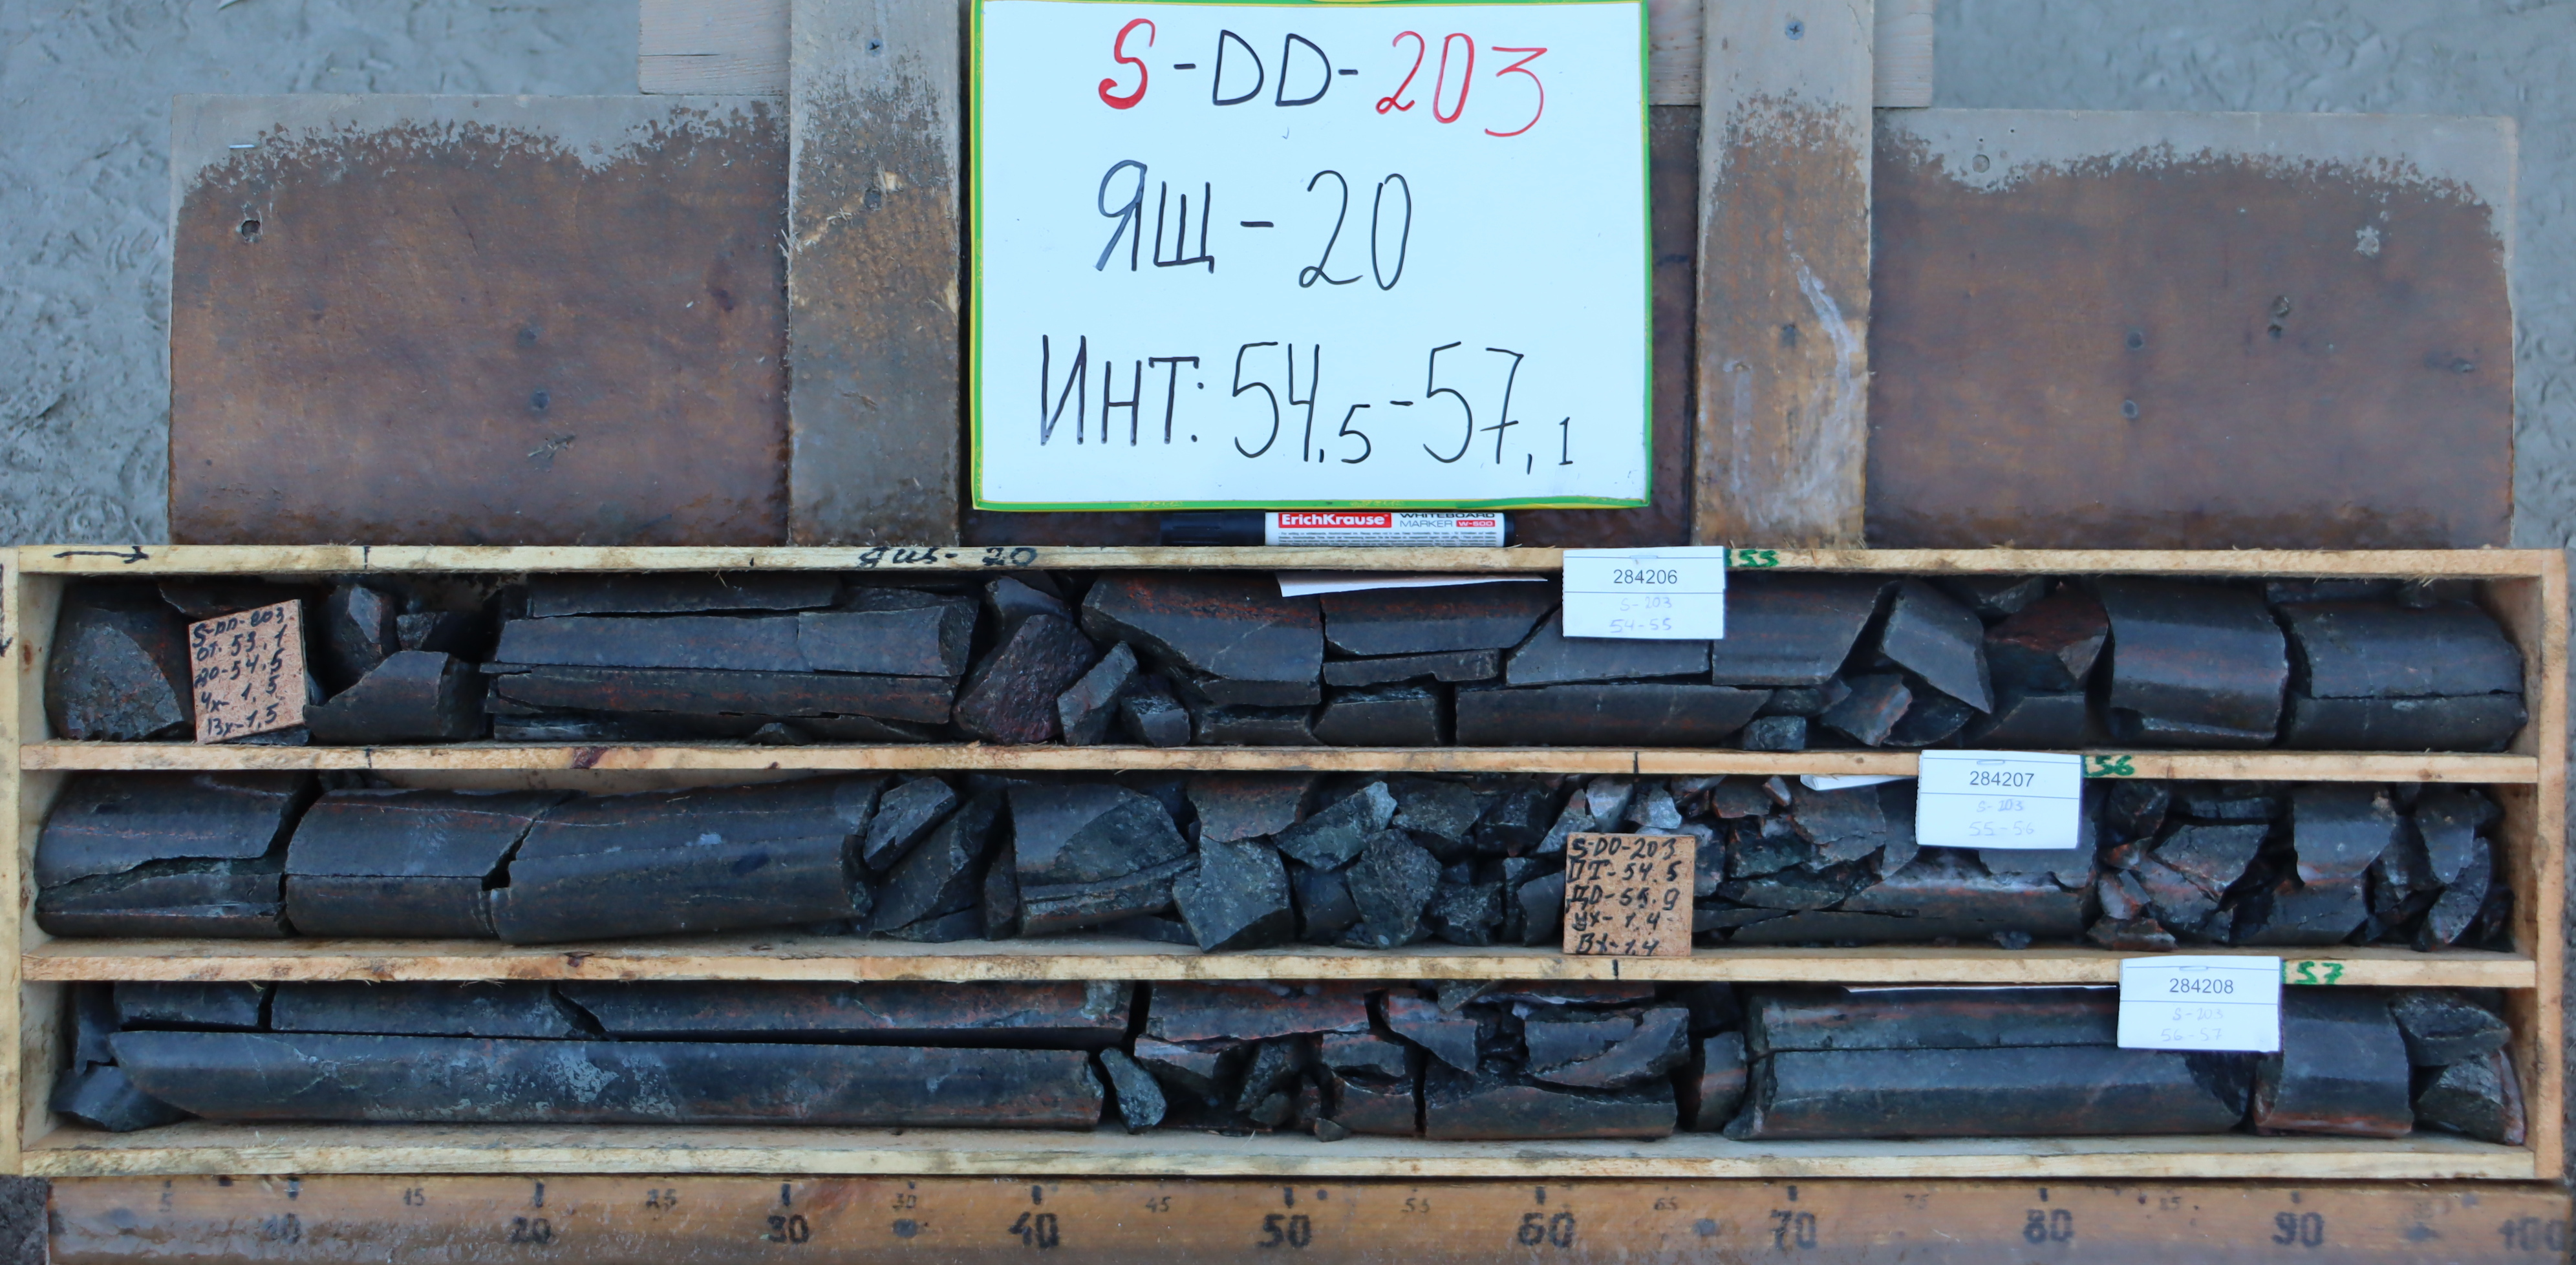 S-DD-203
ЯЩ-20
ИНТ: 54,5-57,1
ErichKrause WHITEBOARD
MARKER W-600
Ящ- 20
55
284206
S-203
54-55
S-DD-203
ОТ. 53,1
ДО-54,5
Ух- 1,5
Вх-1,5
56
284207
S-203
55-56
S-DD-203
ОТ-54.5
ДО-55.9
Ух-1,4
Вх-1,4
57
284208
S-203
56-57
10 15 20 25 30 30 40 45 50 55 60 65 70 75 80 85 90 100